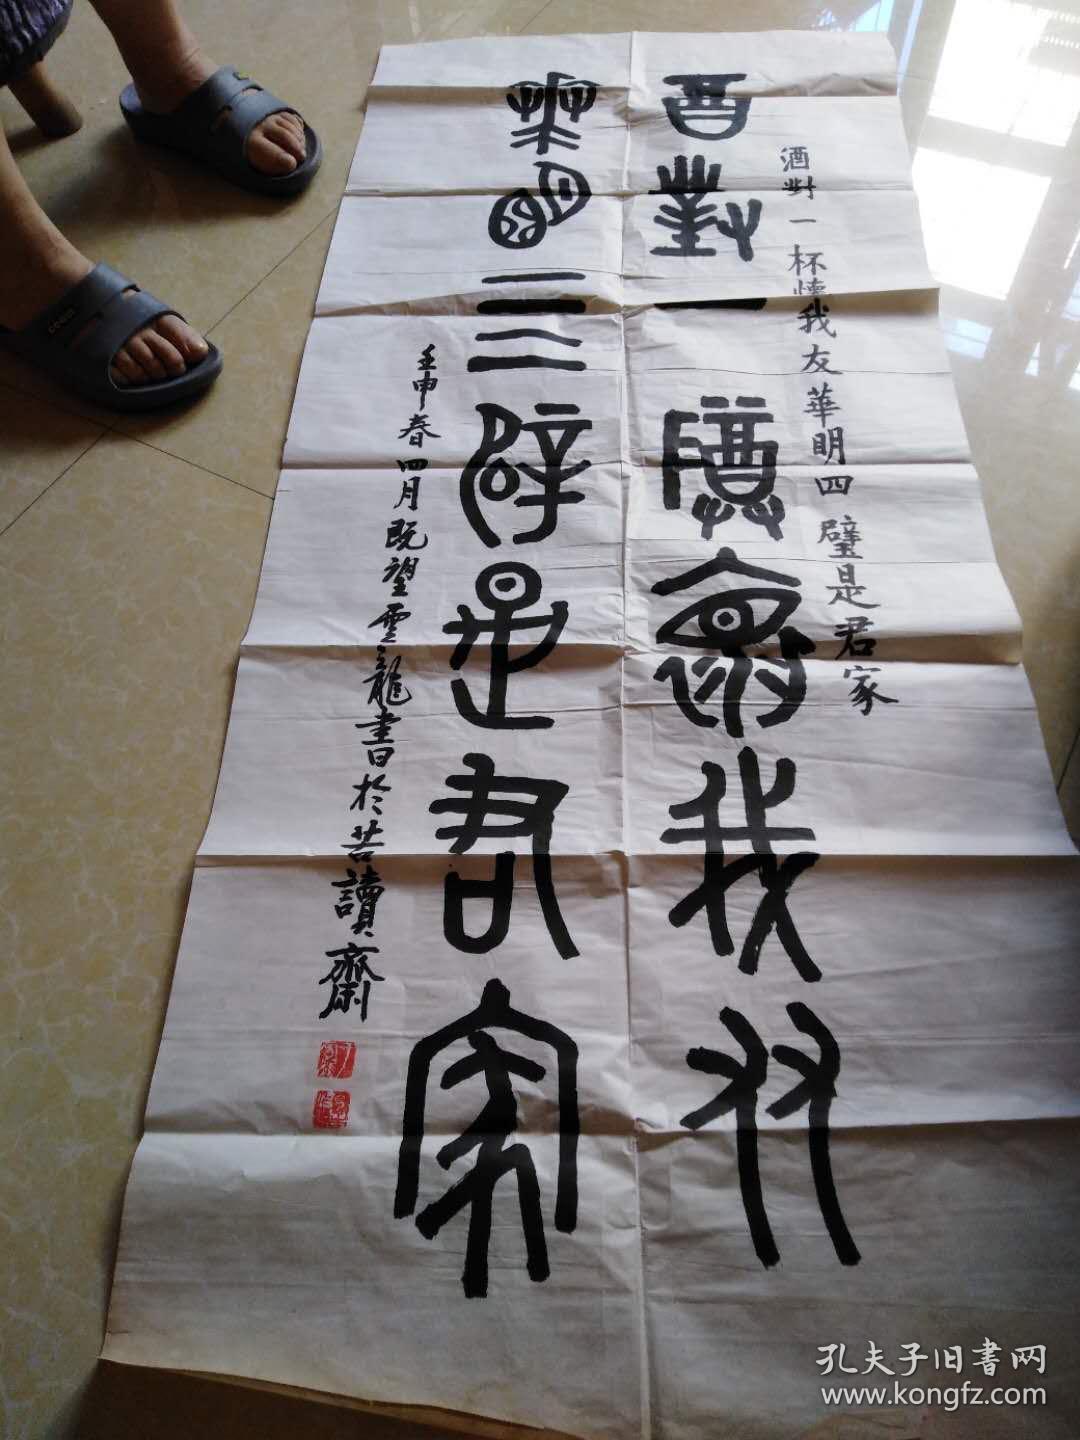 酒對一杯懷我友華明四璧是君家
酉對一杯懷我友
華明三辟是君家
壬申春四月既望雲龍書於苦讀齋
孔夫子旧書网
www.kongfz.com